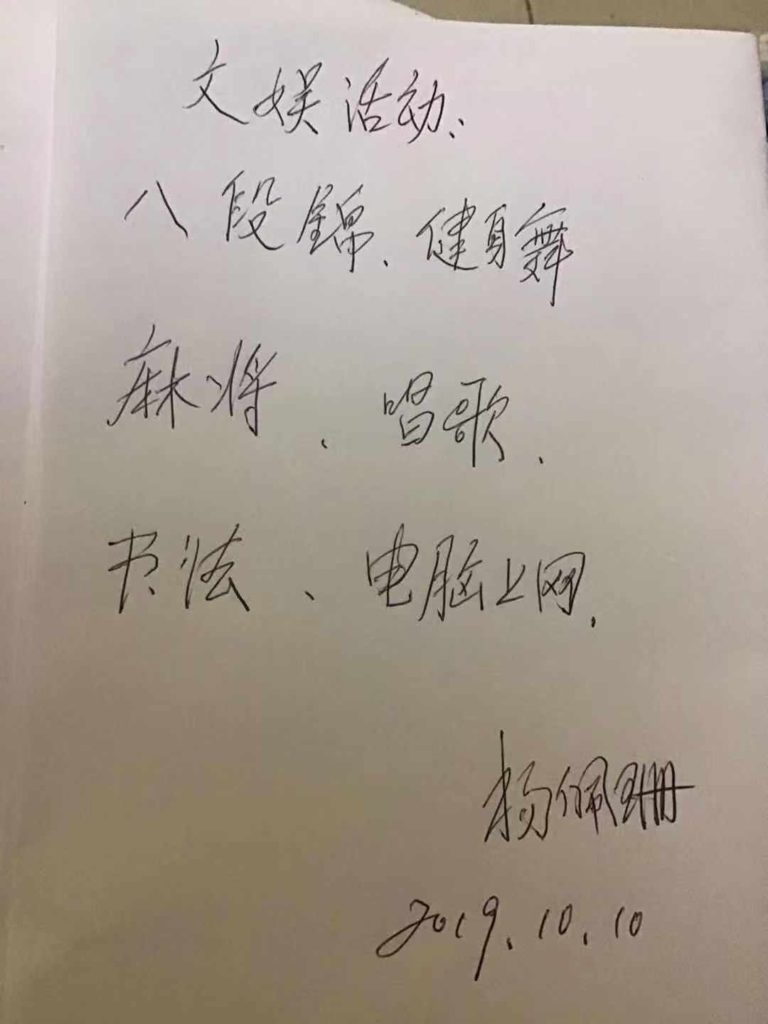 文娱活动、
八段錦、健身舞
麻将、唱歌、
书法、电脑上网、
杨佩珊
2019.10.10